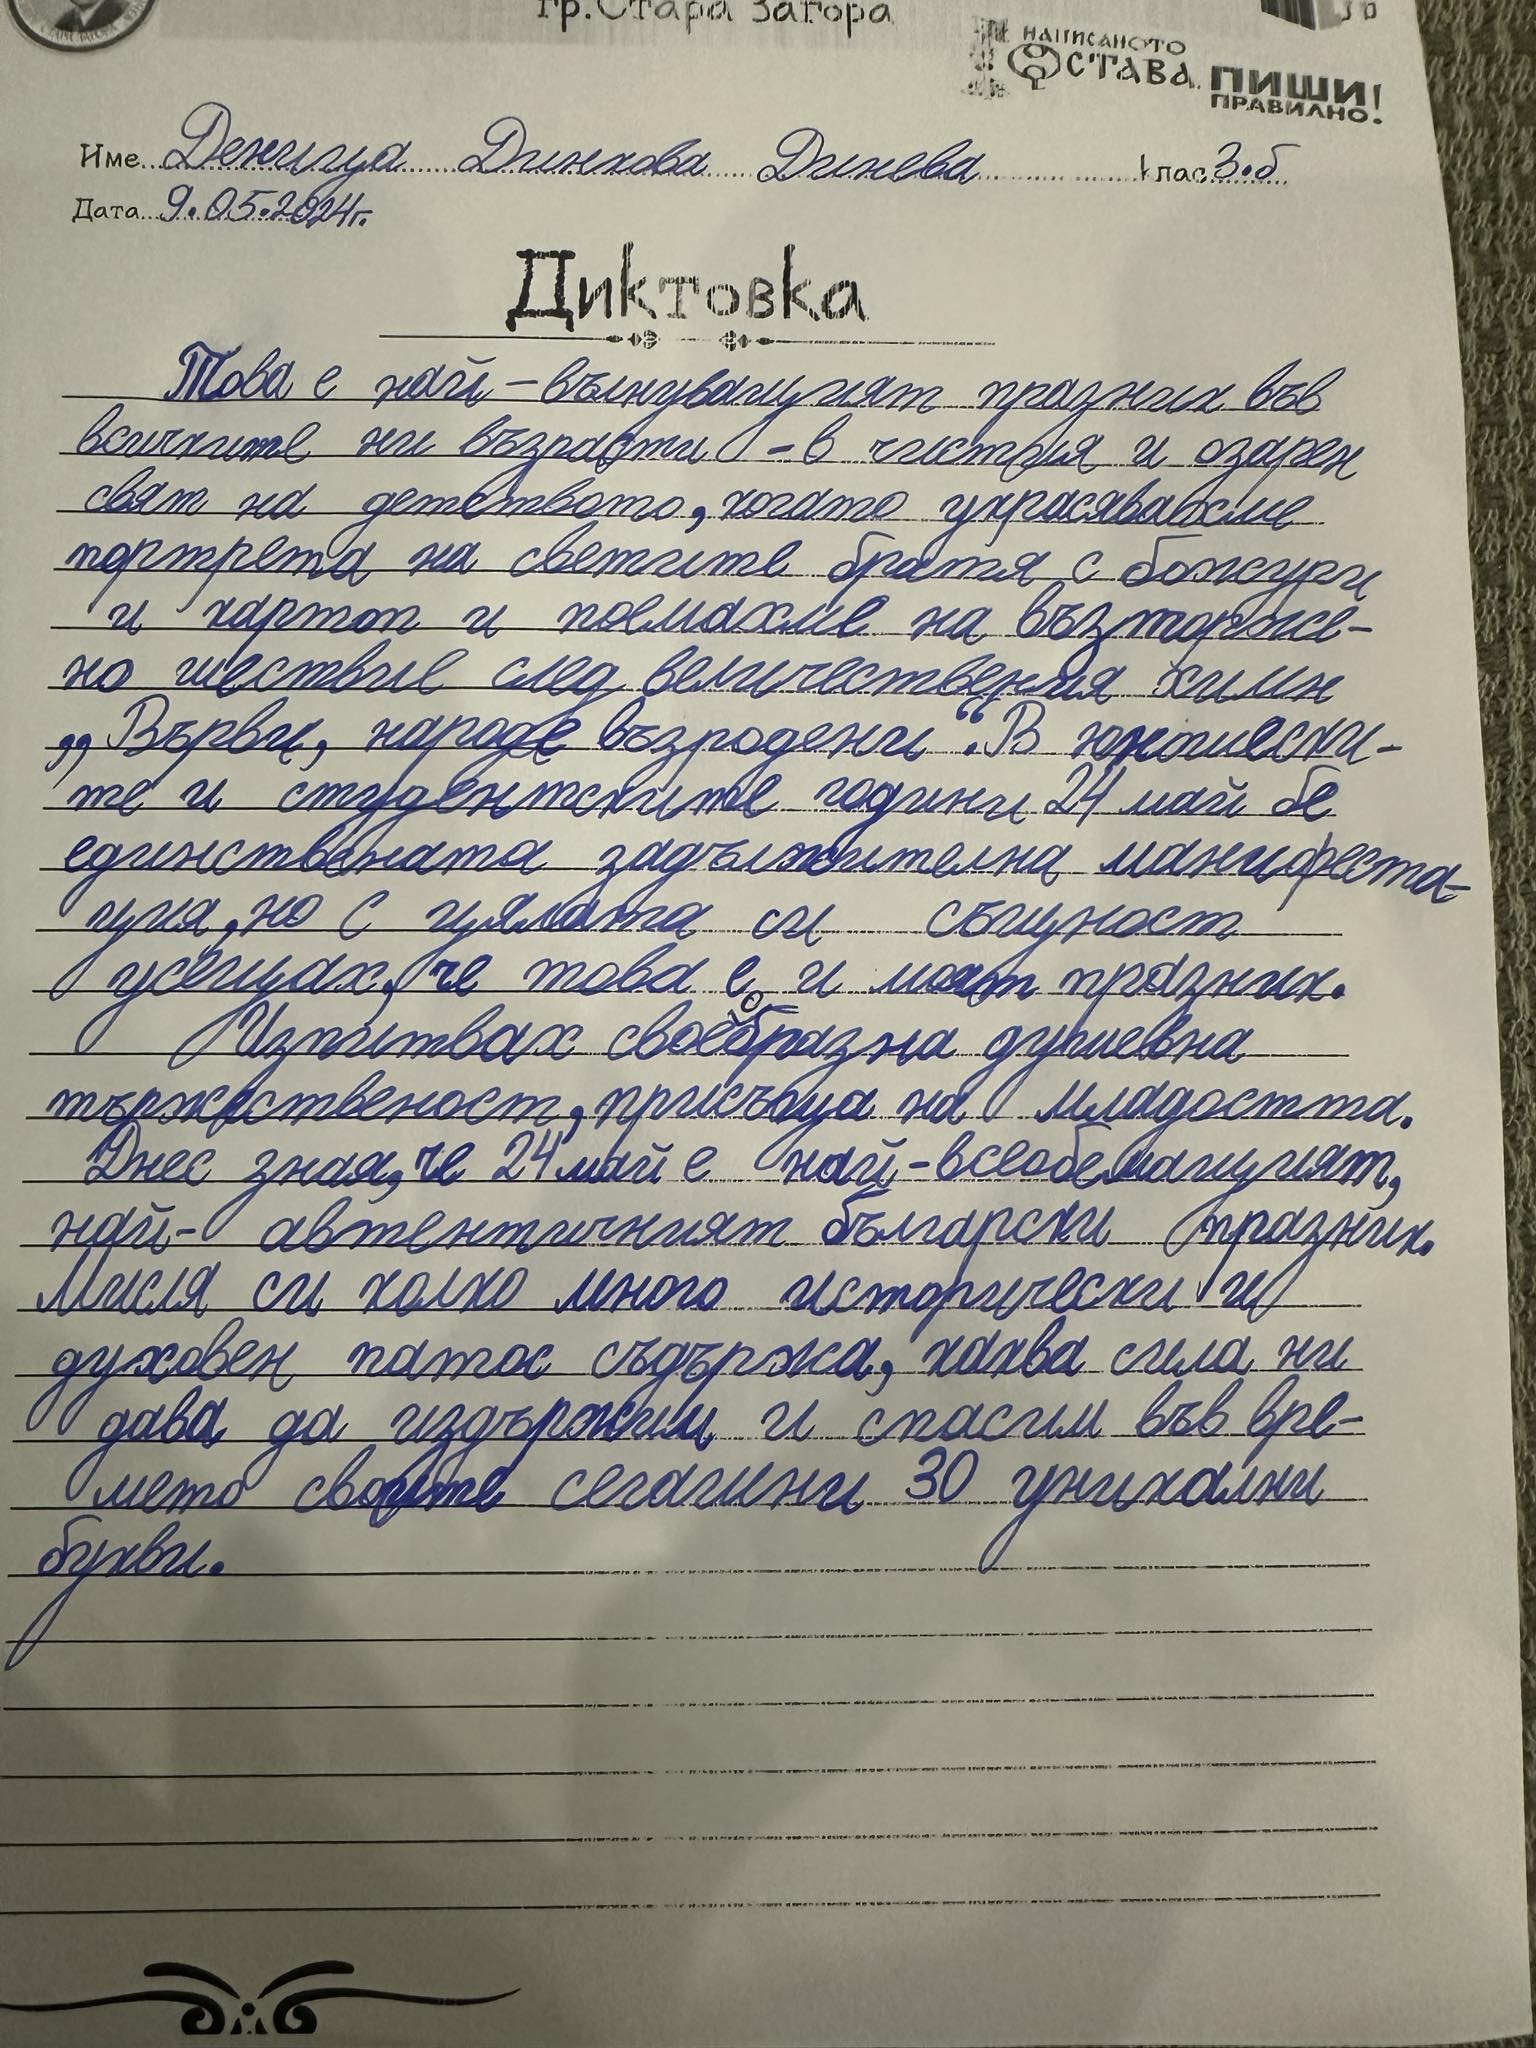 гр. Стара Загора
НАПИСАНОТО
ОСТАВА. ПИШИ
ПРАВИЛНО!
Име Деница Динкова Динева клас 3.б
Дата 9.05.2024г.
Диктовка
Това е най-вълнуващият празник във
всичките ни възрасти - в чистия и озарен
свят на детството, когато украсявахме
портрета на светите братя с божури
и картон и поемахме на възторже-
но шествие след величествения химн
„Върви, народе възродени“. В юношески-
те и студентските години 24 май бе
единствената задължителна манифеста-
ция, но с цялата си същност
усещах, че това е и моят празник.
Изпитвах своеобразна душевна
тържественост, присъща на младостта.
Днес зная, че 24 май е най-всеобемащият,
най- автентичният български празник.
Мисля си колко много исторически и
духовен патос съдържа, каква сила ни
дава да издържим и спасим във вре-
мето своите сегашни 30 уникални
букви.